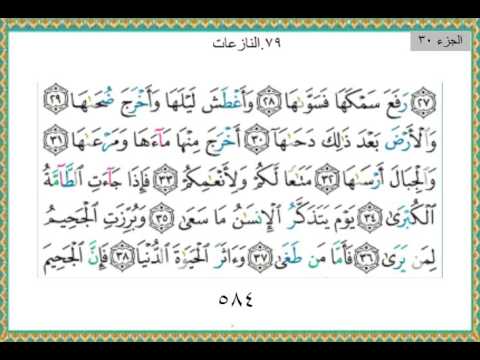 ٧٩.النازعات
الجزء ٣٠
﴿٢٧﴾ رَفَعَ سَمْكَهَا فَسَوَّىٰهَا ﴿٢٨﴾ وَأَغْطَشَ لَيْلَهَا وَأَخْرَجَ ضُحَىٰهَا ﴿٢٩﴾
وَالْأَرْضَ بَعْدَ ذَٰلِكَ دَحَىٰهَا ﴿٣٠﴾ أَخْرَجَ مِنْهَا مَآءَهَا وَمَرْعَىٰهَا ﴿٣١﴾
وَالْجِبَالَ أَرْسَىٰهَا ﴿٣٢﴾ مَتَٰعًا لَكُمْ وَلِأَنْعَٰمِكُمْ ﴿٣٣﴾ فَإِذَا جَآءَتِ الطَّآمَّةُ
الْكُبْرَىٰ ﴿٣٤﴾ يَوْمَ يَتَذَكَّرُ الْإِنسَٰنُ مَا سَعَىٰ ﴿٣٥﴾ وَبُرِّزَتِ الْجَحِيمُ
لِمَن يَرَىٰ ﴿٣٦﴾ فَأَمَّا مَن طَغَىٰ ﴿٣٧﴾ وَءَاثَرَ الْحَيَوٰةَ الدُّنْيَا ﴿٣٨﴾ فَإِنَّ الْجَحِيمَ
٥٨٤